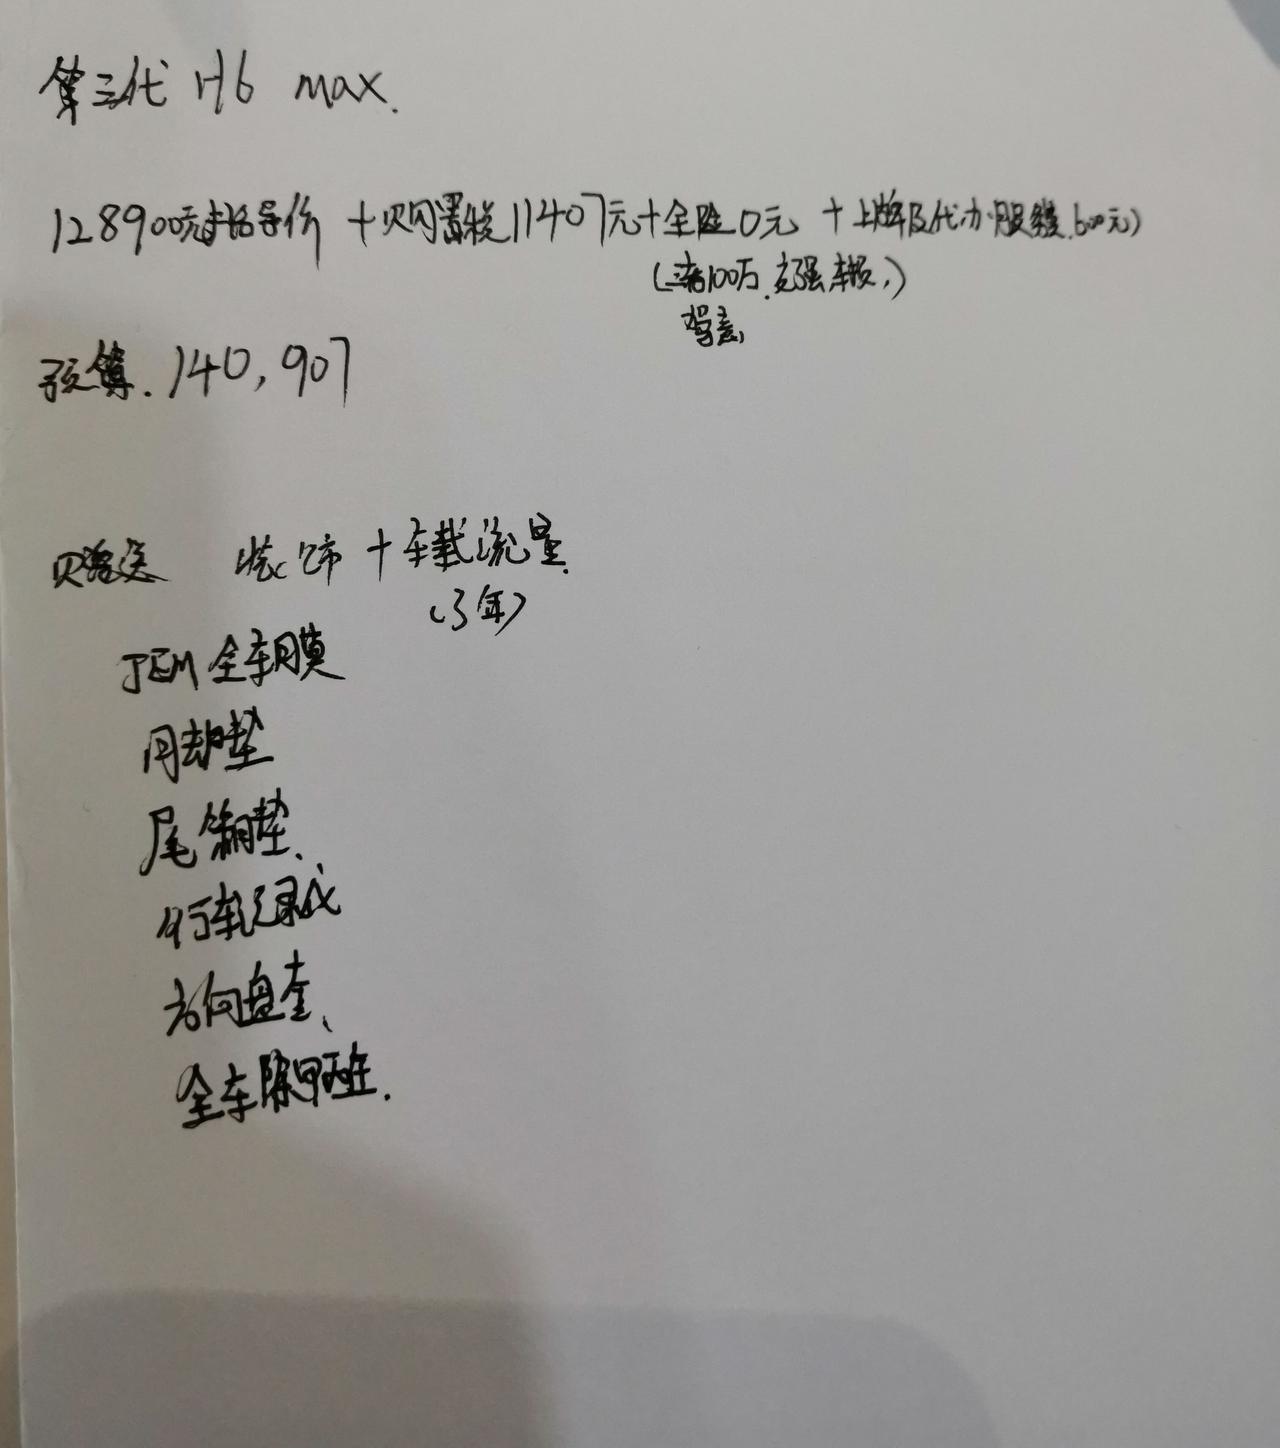 第三代 H6 max.
128900元指导价 + 购置税11407元+全险0元 + 上牌及代办服务600元)
(三者100万.交强车损,)
驾意
预算. 140,907
赠送 装饰 + 车载流量.
(3年)
JEM 全车膜
脚垫
尾箱垫.
行车记录仪
方向盘套、
全车除甲醛.